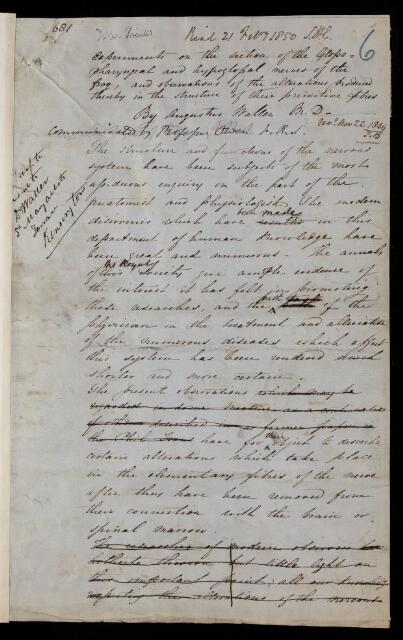 681
To be Printed
Read 21 Feby 1850
6
Experiments on the section of the Glosso-
pharyngeal and hypoglossal nerves of the
frog, and observations of the alterations produced
thereby in the structure of their primitive fibres
By Augustus Waller M.D.
Rec. Nov 22. 1849
Communicated by Professor Owen F.R.S.
The structure and functions of the nervous
system have been subjects of the most
assiduous enquiry on the part of the
anatomist and physiologist. The modern
been made
discoveries which have in this
department of human knowledge have
been great and numerous. The annals
the Royal
of Society give ample evidence of
the interest it has felt in promoting
path
these researches, and the of the
physician in the treatment and alleviation
of the numerous diseases which affect
this system has been rendered much
shorter and more certain.
The present observations which may be
regarded in some measure as a continuation
of those described in a former paper in
the Phil Trans have for their object to describe
certain alterations which take place
in the elementary fibres of the nerve
after they have been removed from
their connection with the brain or
spinal marrow.
The researches of modern observers have
hitherto thrown but little light on
this important point; all our knowledge
respecting the alterations of the nervous
Dr Waller
St Margarets
Kensington